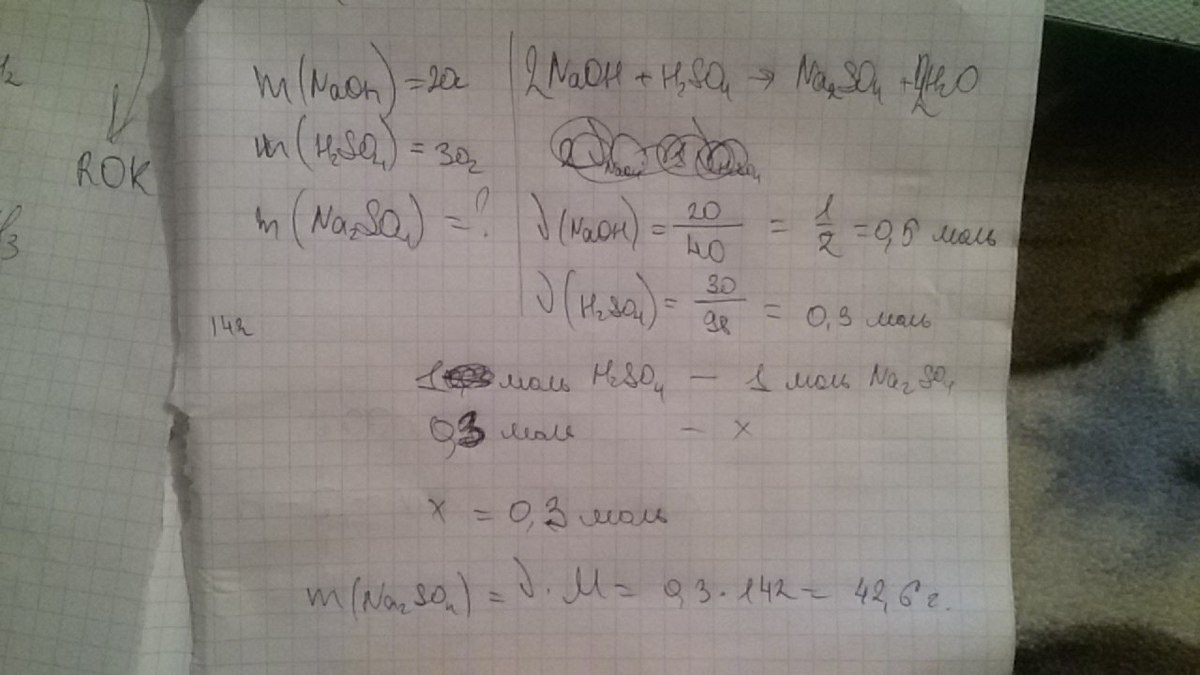 m(NaOH) = 20г
2NaOH + H₂SO₄ → Na₂SO₄ + 2H₂O
m(H₂SO₄) = 30г
m(Na₂SO₄) = ?
ROK
ν(NaOH) = 20/40 = 1/2 = 0,5 моль
ν(H₂SO₄) = 30/98 = 0,3 моль
142
1 моль H₂SO₄ — 1 моль Na₂SO₄
0,3 моль — x
x = 0,3 моль
m(Na₂SO₄) = ν · M = 0,3 · 142 = 42,6 г.